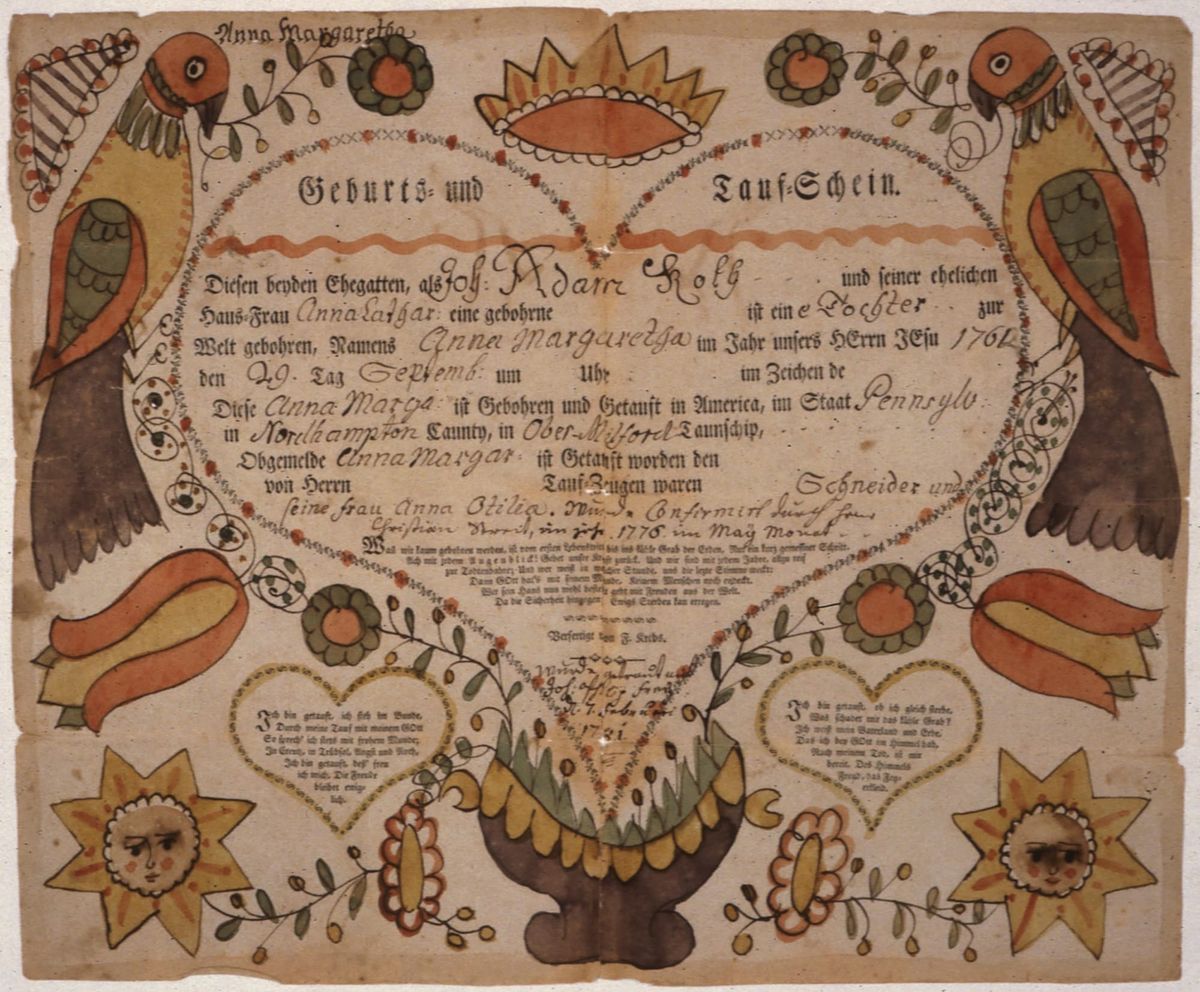 Anna Margaretha
Geburts- und Tauf-Schein.
Diesen beyden Ehegatten, als Joh: Adam Kolb und seiner ehelichen
Haus-Frau Anna Cathar: eine gebohrne ist eine Tochter zur
Welt gebohren, Namens Anna Margaretha im Jahr unsers HErrn JEsu 1761
den 29. Tag Septemb: um Uhr im Zeichen de
Diese Anna Marga: ist Gebohren und Getauft in America, im Staat Pennsylv:
in Nordhampton Caunty, in Ober-Milford Taunschip,
Obgemelde Anna Margar: ist Getauft worden den
von Herrn Tauf-Zeugen waren Schneider und
seine frau Anna Otilia. Wurde Confirmirt durch
Christian Streit, im Jahr 1776. im May Monat
Was wir kaum gebohren werden, ist vom ersten Lebenstritt bis ins kühle Grab der Erden, Nur ein kurz gemessner Schritt.
Ach mit jedem Augenblick! Gehet unser Kraft zurück, Und wir sind mit jedem Jahre, allzu reif
zur Todtenbahre; Und wer weiß in welcher Stunde, uns die lezte Stimme weckt;
Dann GOtt hat's mit seinem Munde, Keinem Menschen noch endeckt.
Wer sein Haus nun wohl bestellt, geht mit Freuden aus der Welt.
Da die Sicherheit hingegen, Ewigs Sterben kan erregen.
Verfertigt von F. Krebs.
Wurde getraut
Joh.
d. 7. Februari
1781
Ich bin getauft, ich steh im Bunde,
Durch meine Tauf mit meinem GOtt
So sprech' ich stets mit frohem Munde;
In Creutz, in Trübsal, Angst und Noth,
Ich bin getauft, deß' freu
ich mich, Die Freude
bleibet ewig-
lich.
Ich bin getauft, ob ich gleich sterbe,
Was schadet mir das kühle Grab?
Ich weiß mein Vaterland und Erbe,
Das ich bey GOtt im Himmel hab,
Nach meinem Tod, ist mir
bereit. Des Himmels
Freud, das Fey-
erkleid.